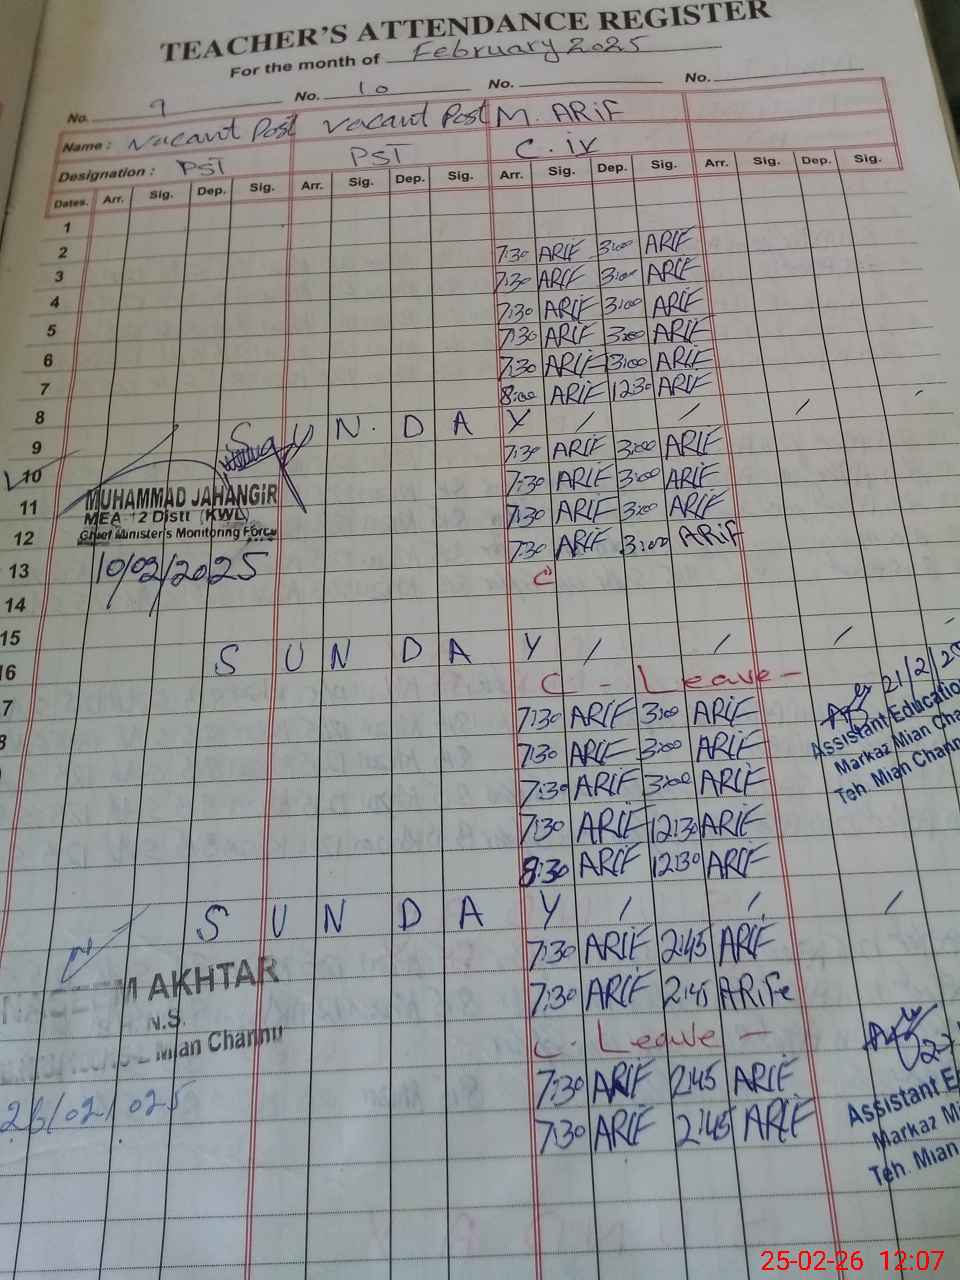 TEACHER'S ATTENDANCE REGISTER
For the month of February 2025
No. 9 No. 10 No. No.
Name : Vacant Post Vacant Post M. ARIF
Designation : PST PST C. iv
Dates. Arr. Sig. Dep. Sig. Arr. Sig. Dep. Sig. Arr. Sig. Dep. Sig. Arr. Sig. Dep. Sig.
1
2 7:30 ARIF 3:00 ARIF
3 7:30 ARIF 3:00 ARIF
4 7:30 ARIF 3:00 ARIF
5 7:30 ARIF 3:00 ARIF
6 7:30 ARIF 3:00 ARIF
7 8:00 ARIF 12:30 ARIF
8 S U N. D A Y / / / /
9 7:30 ARIF 3:00 ARIF
10 7:30 ARIF 3:00 ARIF
11 MUHAMMAD JAHANGIR 7:30 ARIF 3:00 ARIF
MEA 12 Distt (KWL)
12 Chief Minister's Monitoring Force 7:30 ARIF 3:00 ARiF
13 10/02/2025 C
14
15 S U N D A Y / / / /
16 C - Leave - 21/2/25
7 7:30 ARIF 3:00 ARIF Assistant Education
8 7:30 ARIF 3:00 ARIF Markaz Mian Cha
7:30 ARIF 3:00 ARIF Teh. Mian Chann
7:30 ARIF 12:30 ARIF
8:30 ARIF 12:30 ARIF
S U N D A Y / / /
7:30 ARIF 2:45 ARIF
M AKHTAR 7:30 ARIF 2:45 ARiFe
N.S. C. Leave -
Mian Channu 7:30 ARIF 2:45 ARIF Assistant E
26/02/025 7:30 ARIF 2:45 ARIF Markaz Mi
Teh. Mian
25-02-26 12:07